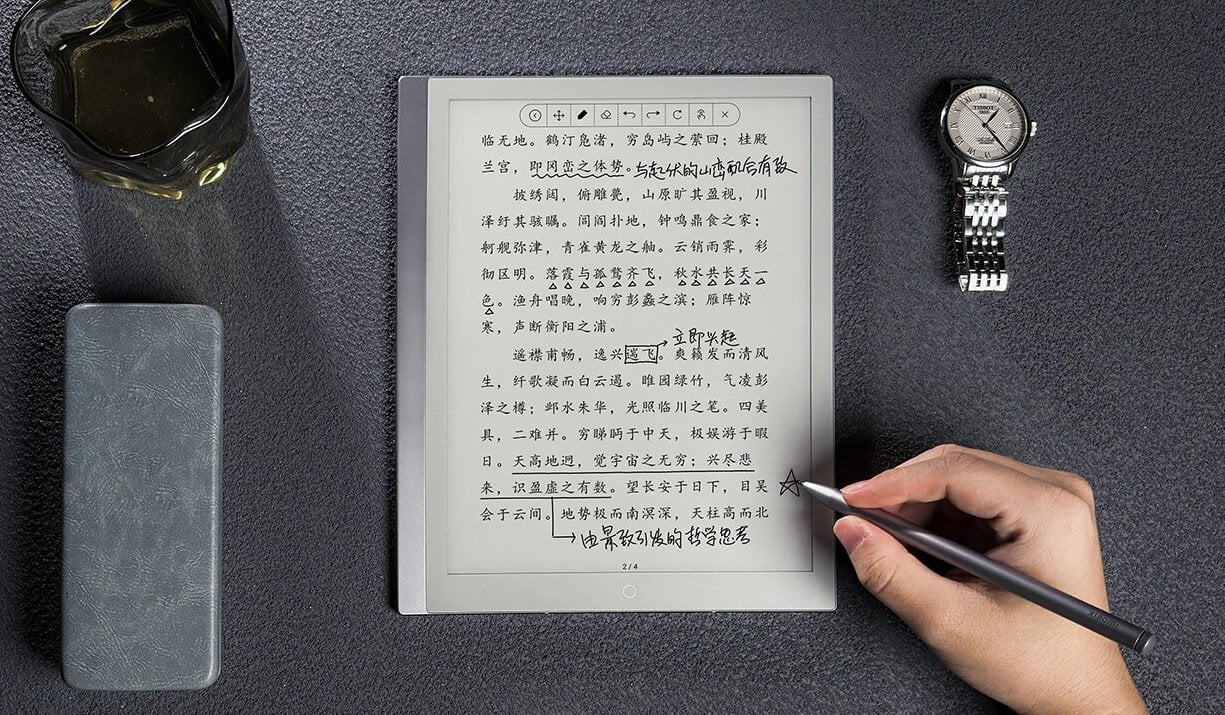 临无地。鹤汀凫渚，穷岛屿之萦回；桂殿
兰宫，即冈峦之体势。与起伏的山峦配合有致
披绣闼，俯雕甍，山原旷其盈视，川
泽纡其骇瞩。闾阎扑地，钟鸣鼎食之家；
舸舰弥津，青雀黄龙之舳。云销雨霁，彩
彻区明。落霞与孤鹜齐飞，秋水共长天一
色。渔舟唱晚，响穷彭蠡之滨；雁阵惊
寒，声断衡阳之浦。
立即兴起
遥襟甫畅，逸兴遄飞。爽籁发而清风
生，纤歌凝而白云遏。睢园绿竹，气凌彭
泽之樽；邺水朱华，光照临川之笔。四美
具，二难并。穷睇眄于中天，极娱游于暇
日。天高地迥，觉宇宙之无穷；兴尽悲
来，识盈虚之有数。望长安于日下，目吴
会于云间。地势极而南溟深，天柱高而北
由景致引发的哲学思考
2/4
TISSOT
xiaomi